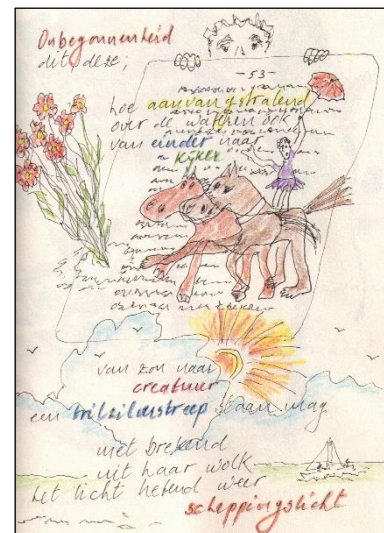 Onbegonnenheid
dit deze;
-53-
hoe aanvangstralend
over de wateren ook
van einder naar
kijker
van zon naar
creatuur
een trilzilverstreep staan mag
niet brekend
uit haar wolk
het licht hetend weer
scheppingslicht